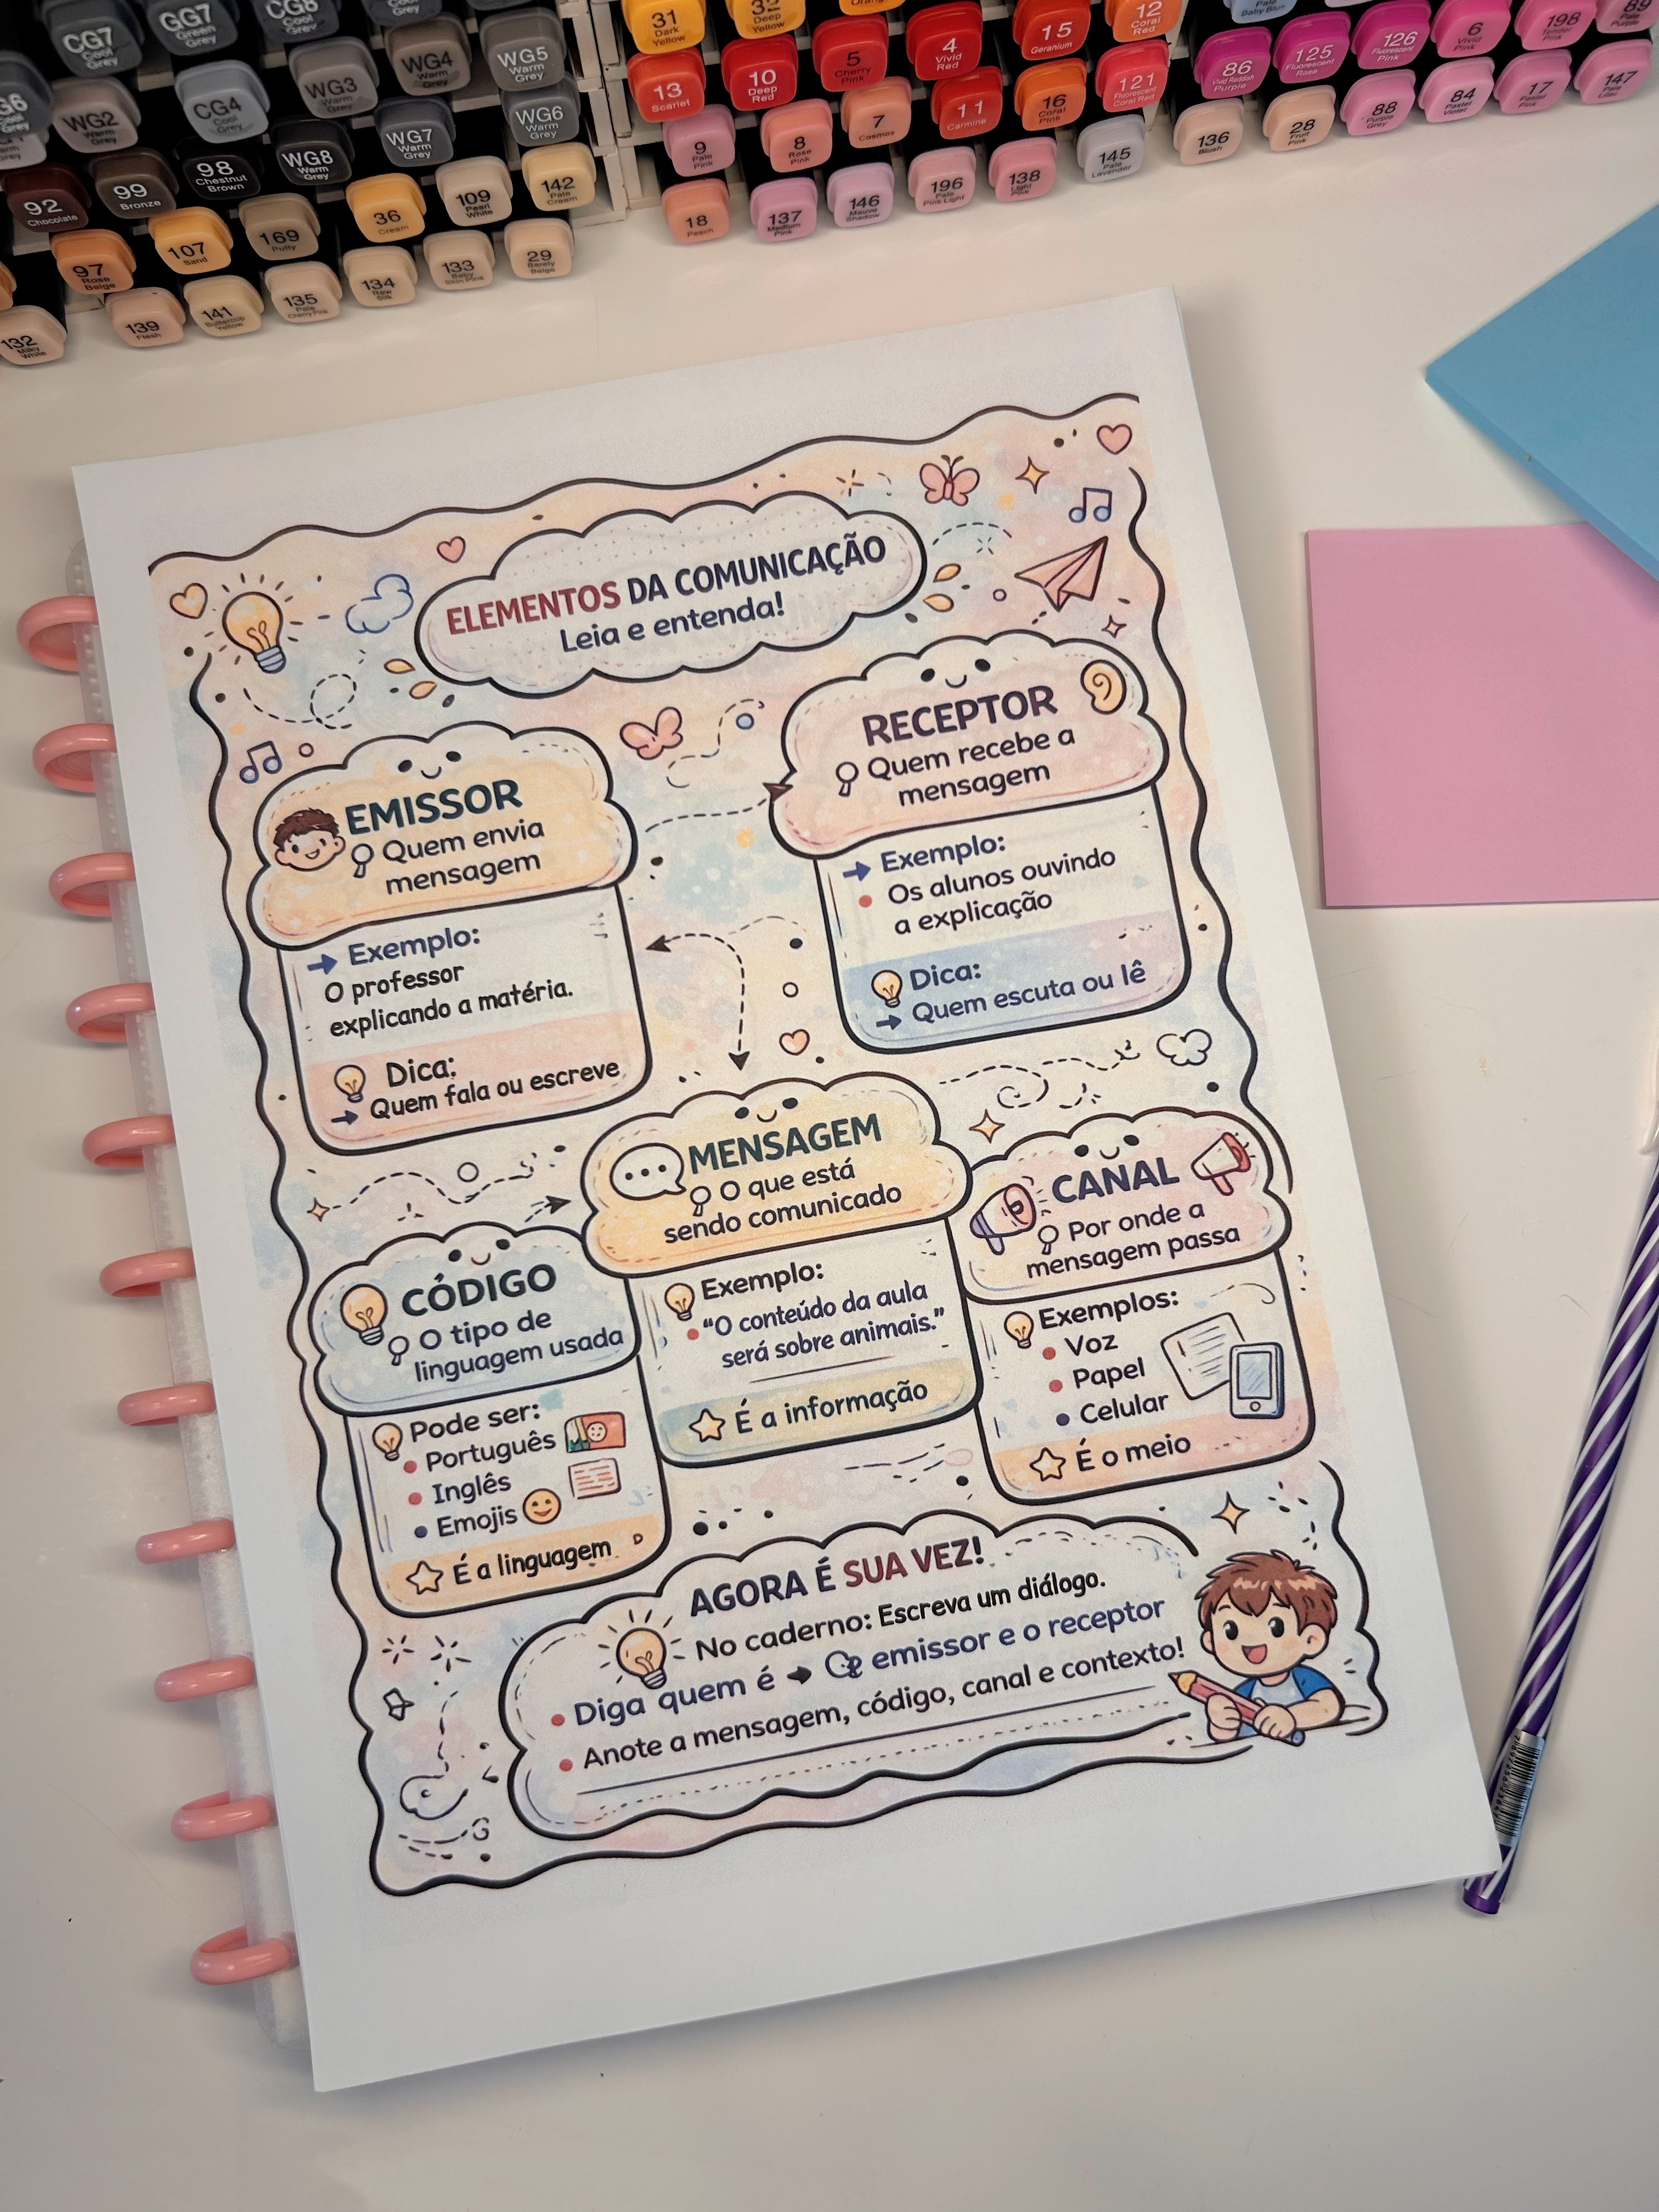 CG7
Cool
Grey
GG7
Green
Grey
CG8
Cool
Grey
WG2
Warm
Grey
CG4
Cool
Grey
WG3
Warm
Grey
WG4
Warm
Grey
WG5
Warm
Grey
92
Chocolate
99
Bronze
98
Chestnut
Brown
WG8
Warm
Grey
WG7
Warm
Grey
WG6
Warm
Grey
97
Rose
Beige
107
Sand
169
Putty
36
Cream
109
Pearl
White
142
Pale
Cream
132
Milky
White
139
Flesh
141
Buttercup
Yellow
135
Pale
Cherry Pink
134
Raw
Silk
133
Baby
Skin Pink
29
Barely
Beige
31
Dark
Yellow
32
Deep
Yellow
Orange
13
Scarlet
10
Deep
Red
5
Cherry
Pink
4
Vivid
Red
15
Geranium
12
Coral
Red
9
Pale
Pink
8
Rose
Pink
7
Cosmos
11
Carmine
16
Coral
Pink
121
Fluorescent
Coral Red
18
Peach
137
Medium
Pink
146
Mauve
Shadow
196
Pale
Pink Light
138
Light
Pink
145
Pale
Lavender
Pale
Baby Blue
86
Vivid Reddish
Purple
125
Fluorescent
Rose
126
Fluorescent
Pink
6
Vivid
Pink
198
Tender
Pink
89
136
Blush
28
Fruit
Pink
88
Purple
Grey
84
Pastel
Violet
17
Pastel
Pink
147
Pale
Lilac
ELEMENTOS DA COMUNICAÇÃO
Leia e entenda!
EMISSOR
Quem envia
mensagem
Exemplo:
O professor
explicando a matéria.
Dica:
Quem fala ou escreve
RECEPTOR
Quem recebe a
mensagem
Exemplo:
Os alunos ouvindo
a explicação
Dica:
Quem escuta ou lê
MENSAGEM
O que está
sendo comunicado
Exemplo:
“O conteúdo da aula
será sobre animais.”
É a informação
CANAL
Por onde a
mensagem passa
Exemplos:
Voz
Papel
Celular
É o meio
CÓDIGO
O tipo de
linguagem usada
Pode ser:
Português
Inglês
Emojis
É a linguagem
AGORA É SUA VEZ!
No caderno: Escreva um diálogo.
Diga quem é emissor e o receptor
Anote a mensagem, código, canal e contexto!